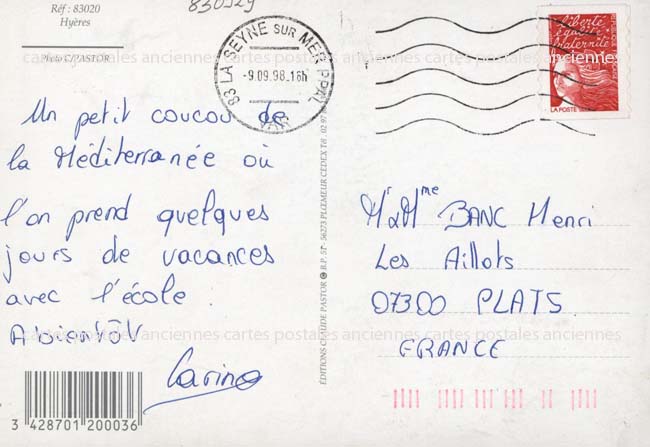 Réf : 83020
Hyères
Photo C/PASTOR
830929
83 LA SEYNE SUR MER PPAL
-9.09.98.-18h
VAR
liberté
égalité
fraternité
LA POSTE
Un petit coucou de
la Méditerranée où
l'on prend quelques
jours de vacances
avec l'école.
A bientôt
Carine
3 428701 200036
ÉDITIONS CLAUDE PASTOR B.P. 51 - 56273 PLEMEUR CEDEX Tél : 02 97
Mr & Mme BANC Henri
Les Aillots
07300 PLATS
FRANCE
cartes postales anciennes cartes postales anciennes cartes postales anciennes
cartes postales anciennes cartes postales anciennes cartes postales anciennes